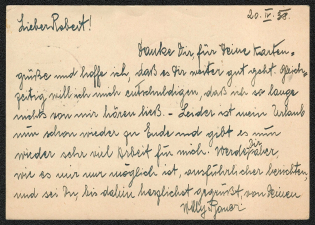 20. IV. 38.
Lieber Robert!
Danke Dir für Deine Karten-
grüße und hoffe ich, daß es Dir weiter gut geht. Gleich-
zeitig will ich mich entschuldigen, daß ich so lange
nichts von mir hören ließ. - Leider ist mein Urlaub
nun schon wieder zu Ende und gibt es nun
wieder sehr viel Arbeit für mich. Werde Dir später
wie es mir nur möglich ist, ausführlicher berichten
und sei Du, bis dahin herzlichst gegrüßt, von Deinen
Willy